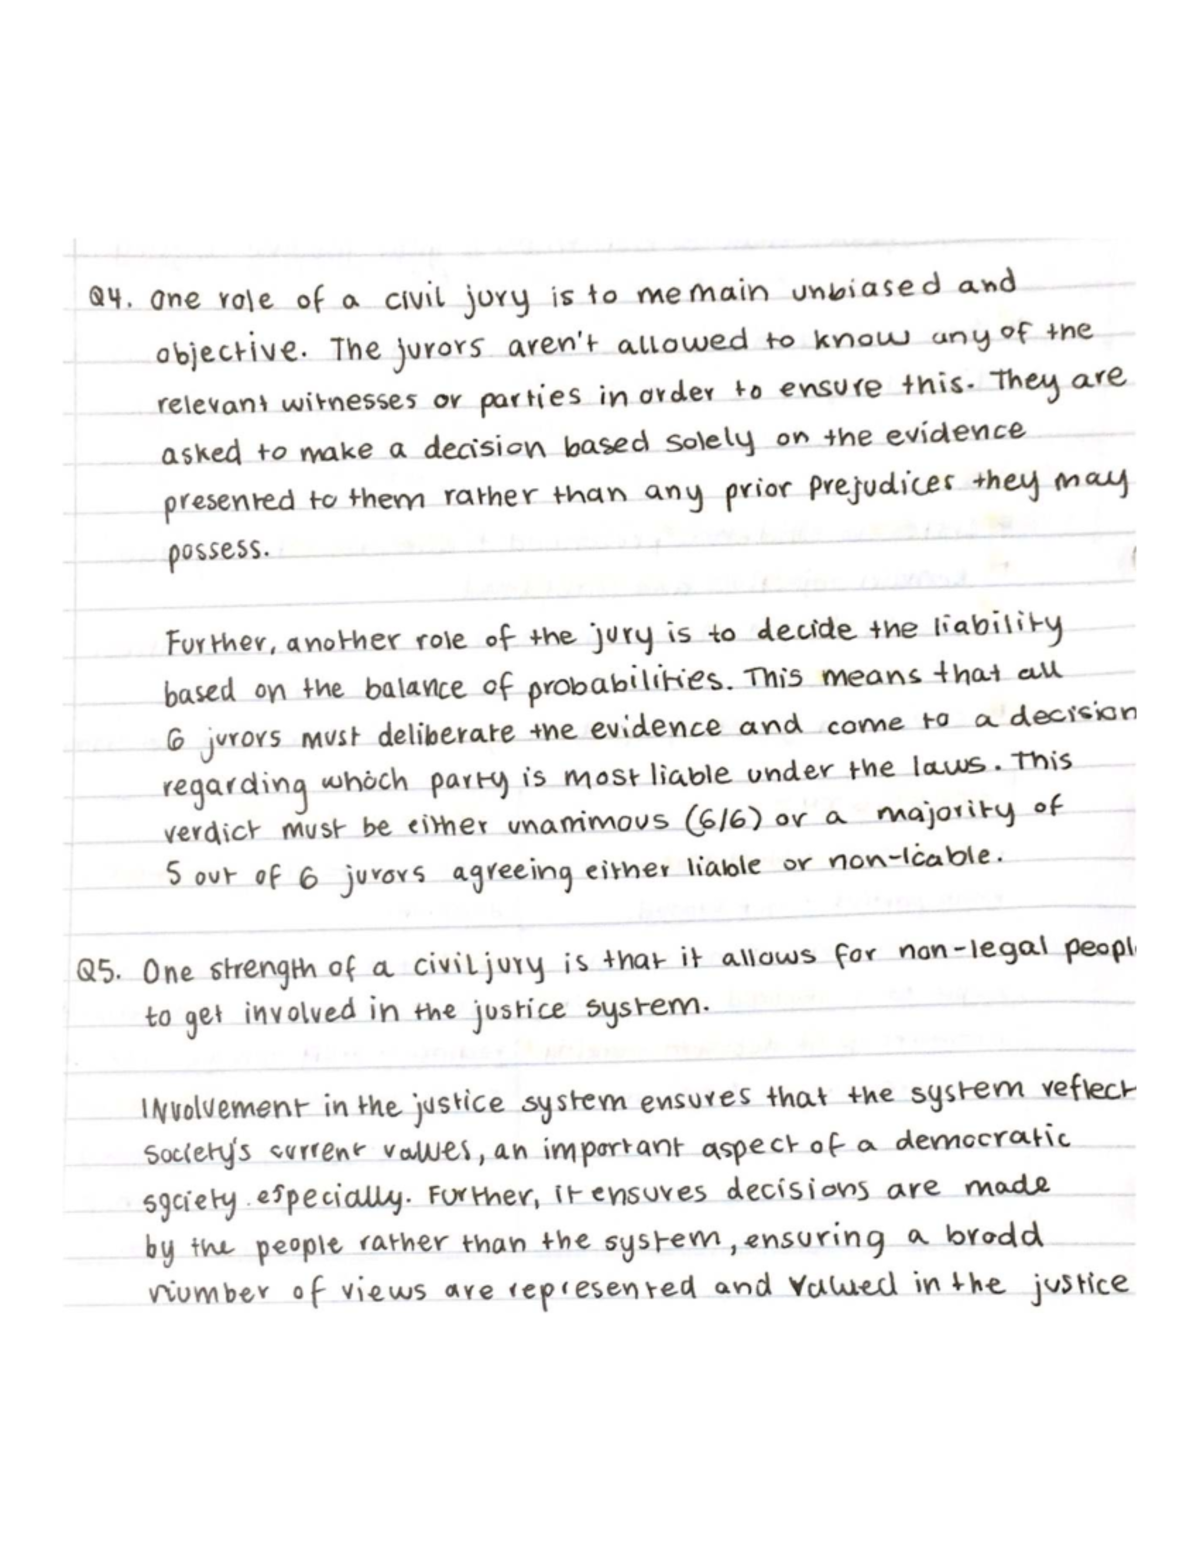 Q4. One role of a civil jury is to memain unbiased and
objective. The jurors aren't allowed to know any of the
relevant witnesses or parties in order to ensure this. They are
asked to make a decision based solely on the evidence
presented to them rather than any prior prejudices they may
possess.
Further, another role of the jury is to decide the liability
based on the balance of probabilities. This means that all
6 jurors must deliberate the evidence and come to a decision
regarding which party is most liable under the laws. This
verdict must be either unanimous (6/6) or a majority of
5 out of 6 jurors agreeing either liable or non-liable.
Q5. One strength of a civil jury is that it allows for non-legal peopl
to get involved in the justice system.
Involvement in the justice system ensures that the system reflect
society's current values, an important aspect of a democratic
society especially. Further, it ensures decisions are made
by the people rather than the system, ensuring a broad
number of views are represented and valued in the justice